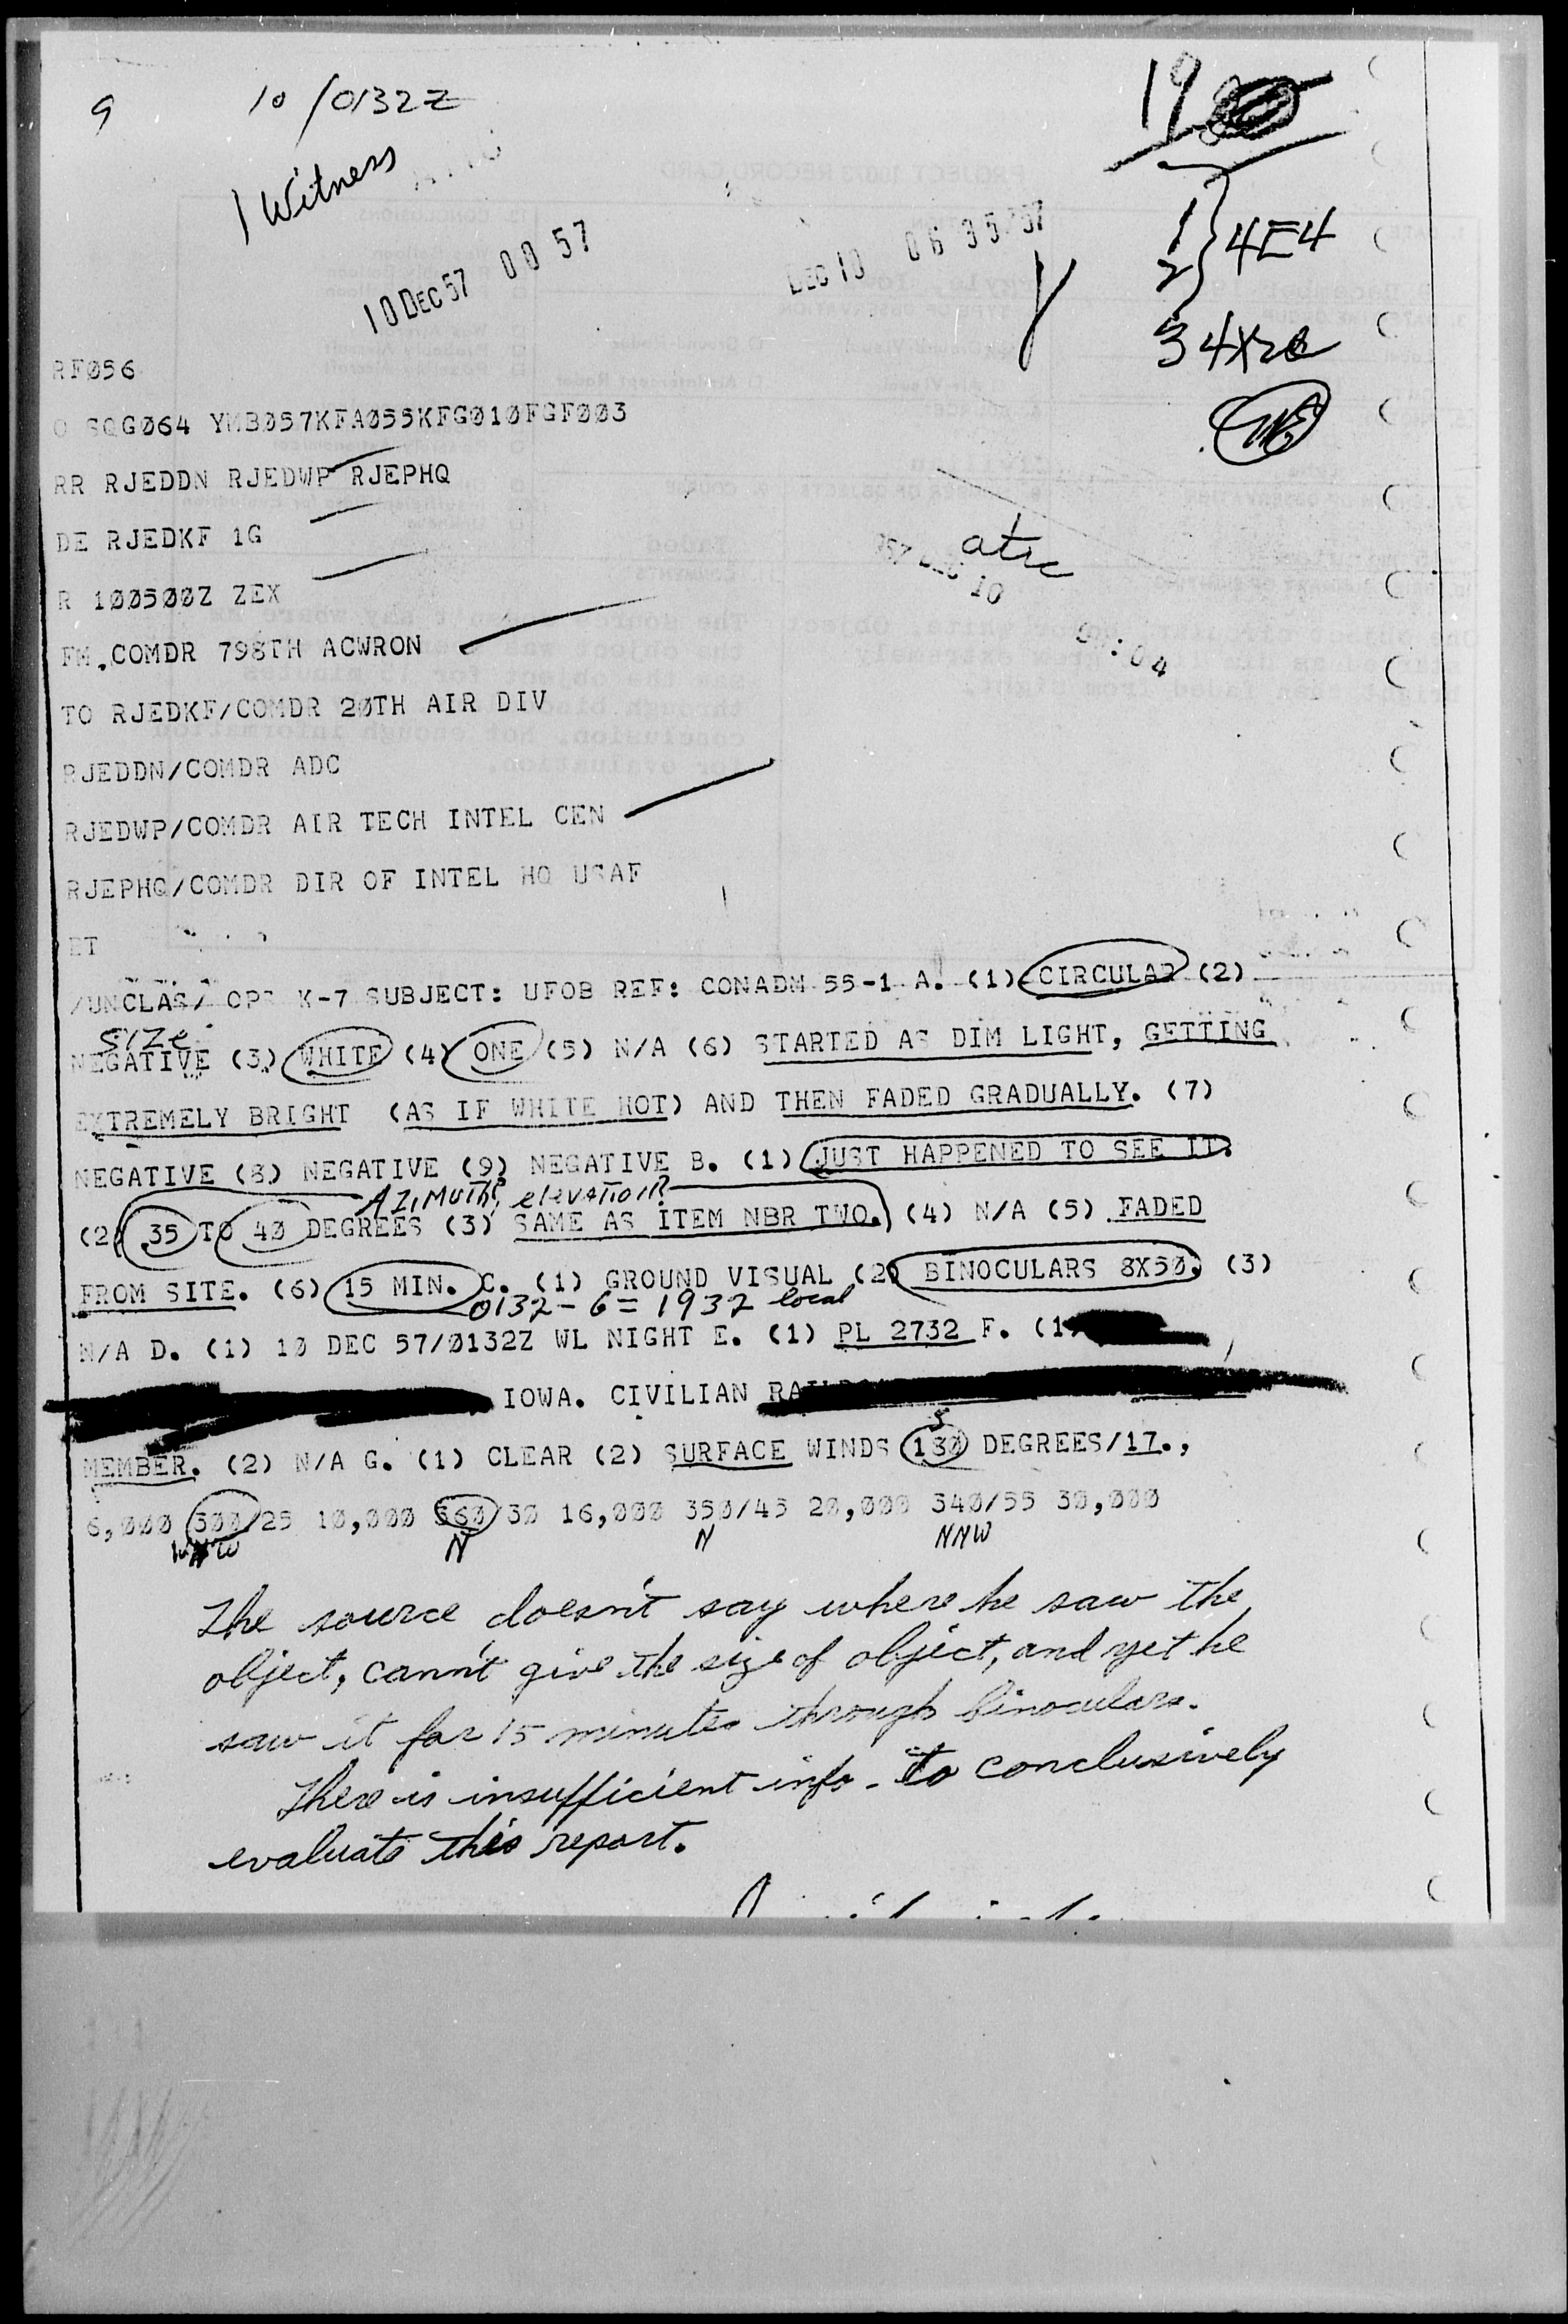 9 10/0132Z
1 Witness
19
10 DEC 57 00 57
DEC 10 06 35 '57
1
2 } 4E4
3 4X
RF056
O SQG064 YMB057KFA055KFG010FGF003
RR RJEDDN RJEDWP RJEPHQ
DE RJEDKF 1G
atic
R 100500Z ZEX
FM COMDR 798TH ACWRON
TO RJEDKF/COMDR 20TH AIR DIV
RJEDDN/COMDR ADC
RJEDWP/COMDR AIR TECH INTEL CEN
RJEPHQ/COMDR DIR OF INTEL HQ USAF
/UNCLAS/ OPS K-7 SUBJECT: UFOB REF: CONADM 55-1 A. (1) CIRCULAR (2)
size
NEGATIVE (3) WHITE (4) ONE (5) N/A (6) STARTED AS DIM LIGHT, GETTING
EXTREMELY BRIGHT (AS IF WHITE HOT) AND THEN FADED GRADUALLY. (7)
NEGATIVE (8) NEGATIVE (9) NEGATIVE B. (1) JUST HAPPENED TO SEE IT.
AZIMUTH? elevation?
(2) 35 TO 40 DEGREES (3) SAME AS ITEM NBR TWO. (4) N/A (5) FADED
FROM SITE. (6) 15 MIN. C. (1) GROUND VISUAL (2) BINOCULARS 8X50. (3)
0132 - 6 = 1932 local
N/A D. (1) 10 DEC 57/0132Z WL NIGHT E. (1) PL 2732 F. (1
IOWA. CIVILIAN
MEMBER. (2) N/A G. (1) CLEAR (2) SURFACE WINDS 130 DEGREES/17.,
6,000 300/25 10,000 360/30 16,000 350/45 20,000 340/55 30,000
WNW N N NNW
The source doesn't say where he saw the
object, cann't give the size of object, and yet he
saw it for 15 minutes through binoculars.
There is insufficient info. to conclusively
evaluate this report.